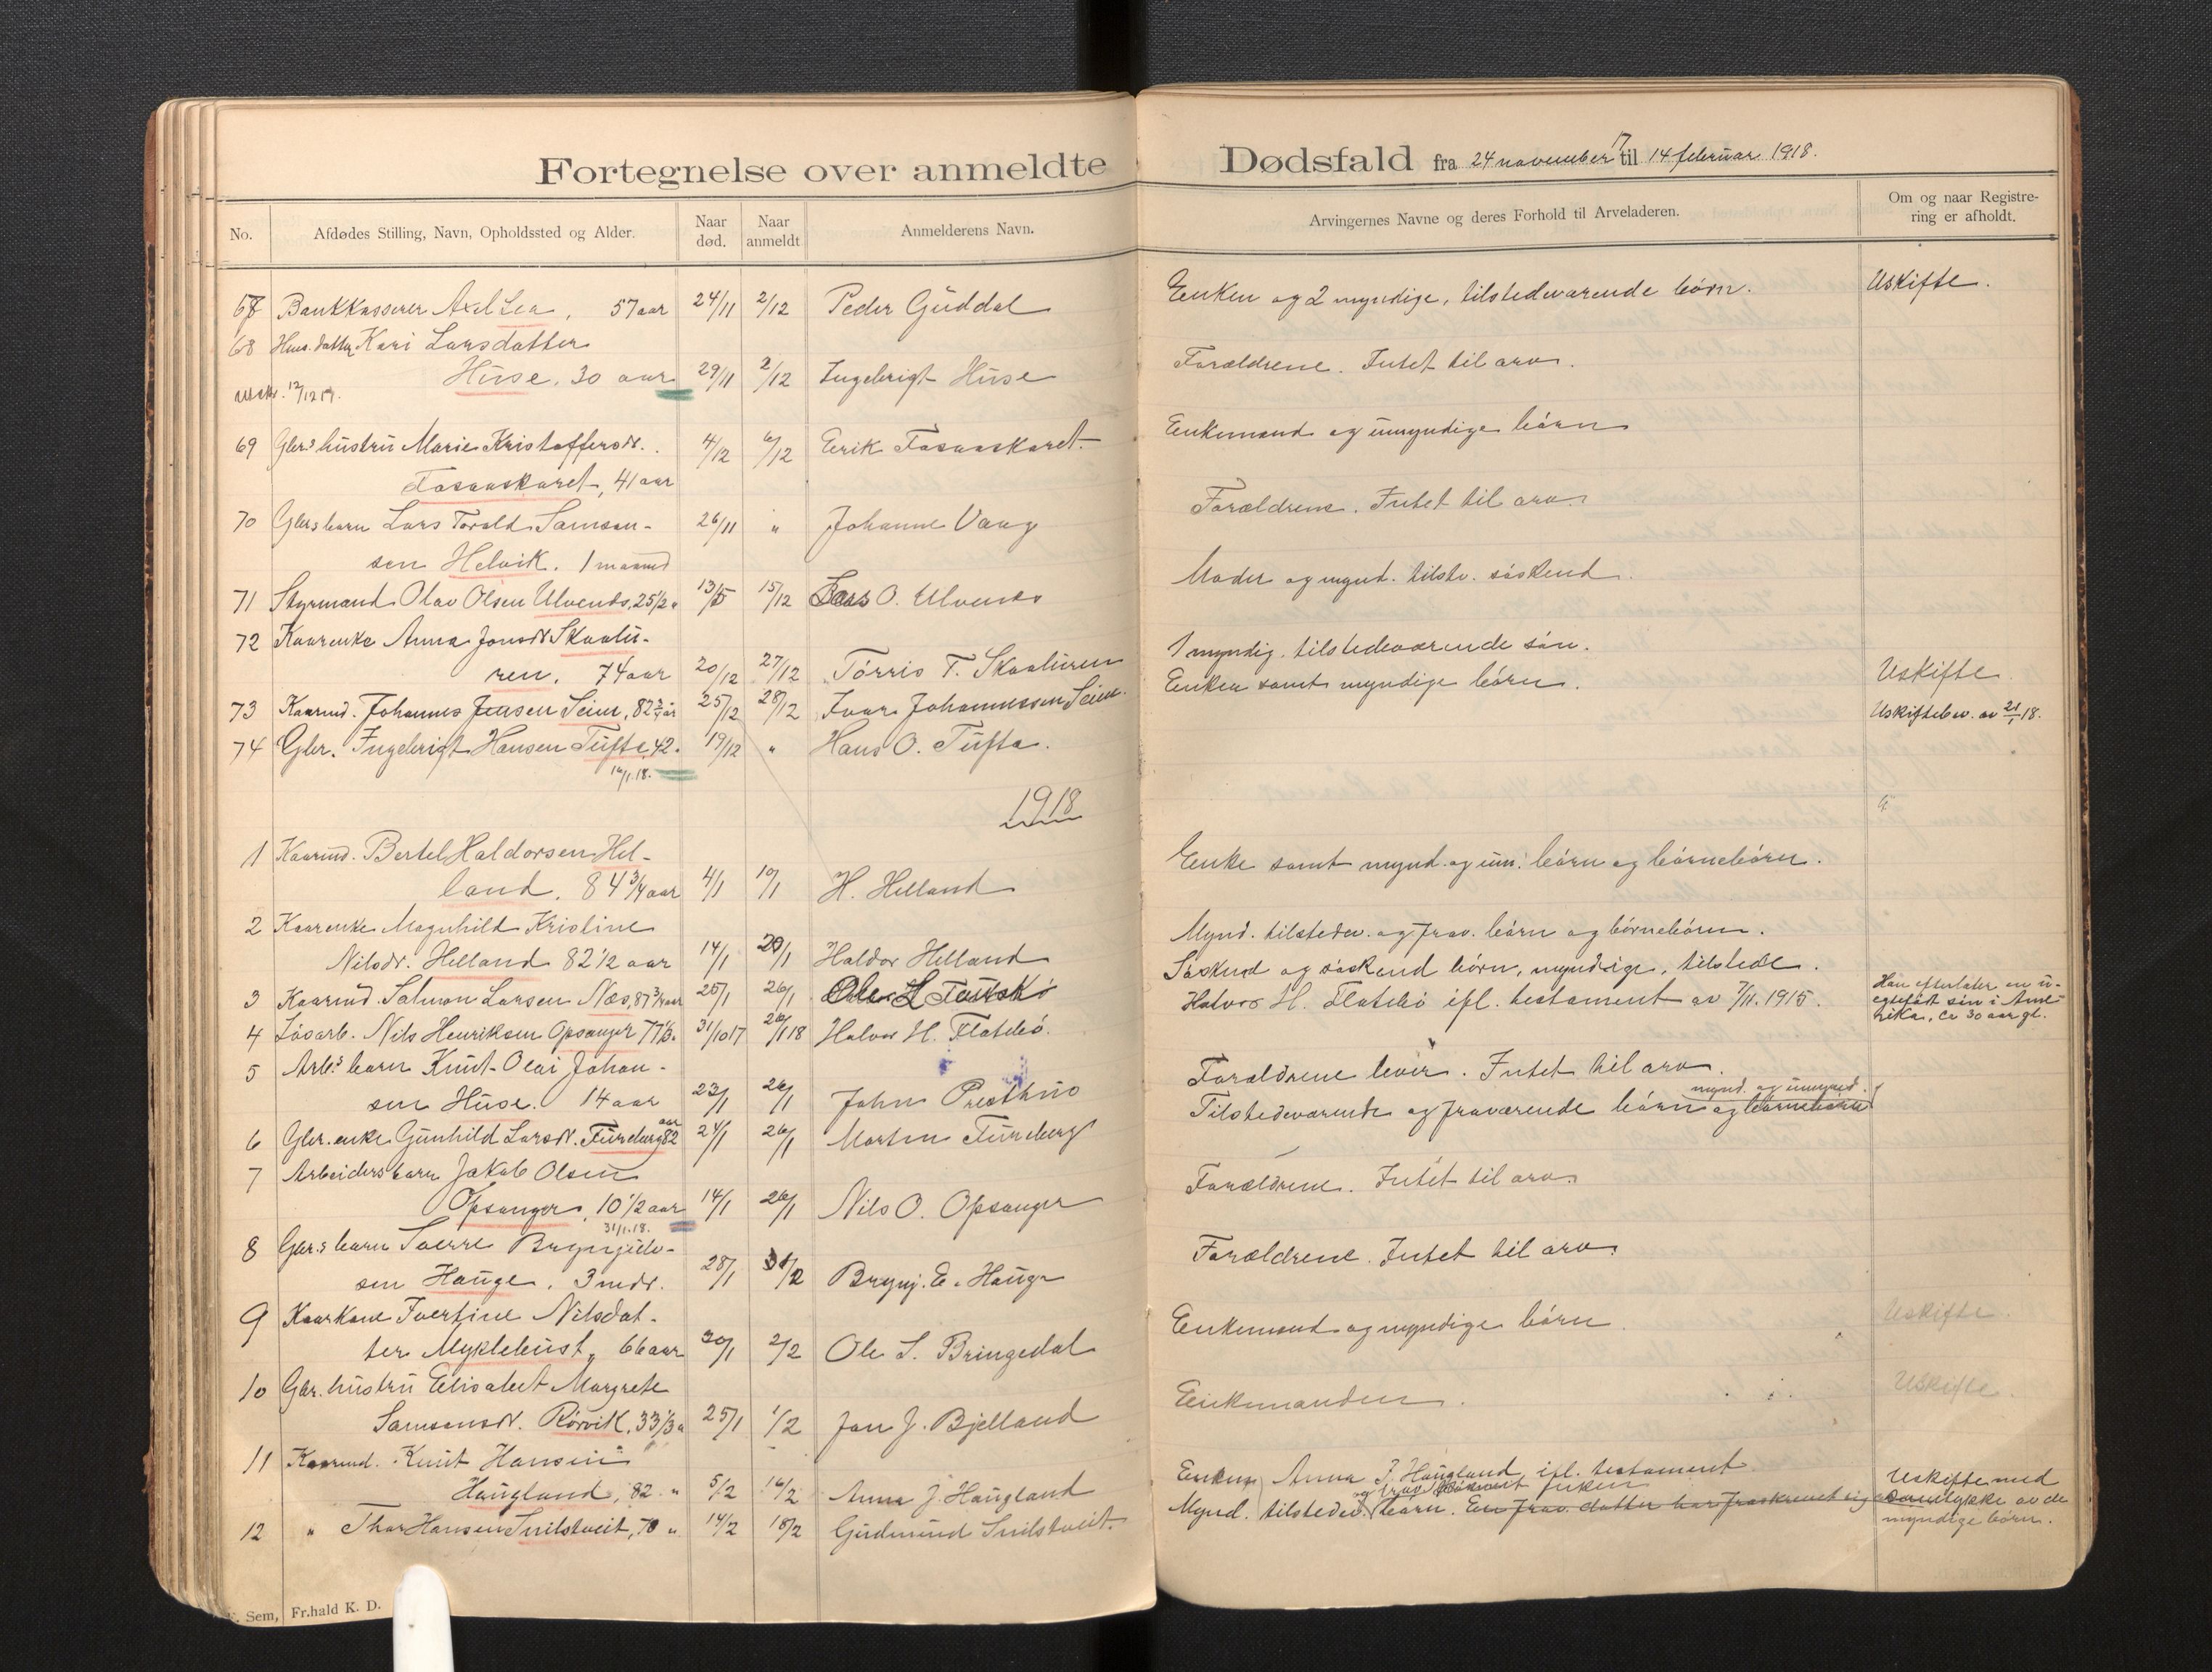 Fortegnelse over anmeldte
No. Afdødes Stilling, Navn, Opholdssted og Alder. Naar død. Naar anmeldt Anmelderens Navn.
67 Bankkasserer Axel Lea, 57 aar 24/11 2/12 Peder Guddal
68 Hus. datter Kari Larsdatter
Huse, 30 aar 29/11 2/12 Ingebrigt Huse
utskr. 12/12 17.
69 Gbr.s hustru Marie Kristoffersdr. 4/12 6/12 Erik Fosaaskaret.
Fosaaskaret, 41 aar
70 Gbrs barn Lars Torald Samson- 26/11 " Johanne Vaag
sen Helvik. 1 maaned
71 Styrmand Olav Olsen Ulvenes, 25 1/2 " 13/5 15/12 Lars O. Ulvenes
72 Kaarenke Anna Jonsdr Skaalu-
ren, 74 aar 20/12 27/12 Tørris T. Skaaluren
73 Kaarmd. Johannes Jensen Seim, 82 3/4 år 25/12 28/12 Ivar Johannessen Seim.
74 Gbr. Ingebrigt Hansen Tufte, 42. 19/12 " Hans O. Tufta.
16/1.18.
1918
1 Kaarmd. Bertel Haldorsen Hel-
land, 84 3/4 aar 4/1 19/1 H. Helland
2 Kaarenke Magnhild Kristine
Nilsdr. Helland 82 1/2 aar 14/1 20/1 Haldor Helland
3 Kaarmd. Salmon Larsen Næs, 87 3/4 aar 25/1 26/1 Ole L
4 Løsarb. Nils Henriksen Opsanger 77 1/3. 31/10 17 26/1 18 Halvor H. Flatebø.
5 Arb.s barn Knut Olai Johan-
sen Huse. 14 aar 23/1 26/1 John Presthus
6 Gbr. enke Gunhild Larsdr. Fureberg 82 aar 24/1 26/1 Morten Fureberg
7 Arbeiders barn Jakob Olsen
Opsanger, 10 1/2 aar 14/1 26/1 Nils O. Opsanger
31/1.18.
8 Gbr.s barn Sverre Brynjulv-
sen Hauge. 3 mdr. 28/1 /2 Brynj. E. Hauge
9 Kaarkone Ivertine Nilsdat-
ter Myklebust, 66 aar 30/1 2/2 Ole S. Bringedal
10 Gbr. hustru Elisabet Margrete
Samsonsdr. Rørvik, 33 1/3 a 25/1 1/2 Jan J. Bjelland
11 Kaarmd. Knut Hansen
Haugland, 82 " 5/2 16/2 Anna J. Haugland
12 " Thor Hansen Snilstveit, 70 " 14/2 18/2 Gudmund Snilstveit.
F. Sem, Fr.hald K. D.
Dødsfald fra 24 november 17 til 14 februar 1918.
Arvingernes Navne og deres Forhold til Arveladeren. Om og naar Registre-
ring er afholdt.
Enken og 2 myndige, tilstedeværende børn. Uskifte.
Forældrene. Intet til arv.
Enkemand og umyndige børn
Forældrene. Intet til arv.
Moder og mynd. tilstv. søskend.
1 myndig tilstedeværende søn.
Enken samt myndige børn. Uskifte.
Uskiftebev. av 21/1 18.
Enke samt mynd. og um. børn og børnebørn.
Mynd. tilstedev. og frav. børn og børnebørn.
Søskend og søskend børn, myndige, tilstede.
Halvor H. Flatebø ifl. testament av 7/11. 1915. Han efterlater en u-
egtefødt søn i Ame-
rika, ca 30 aar gl.
Forældrene lever. Intet til arv.
mynd. og umynd.
Tilstedeværende og fraværende børn og børnebørn
Forældrene. Intet til arv.
Forældrene. Intet til arv.
Enkemand og myndige børn. Uskifte.
Enkemanden. Uskifte.
Enken Anna J. Haugland ifl. testament
og frav.
Mynd. tilstedev. børn. En frav. datter har fraskrevet sig
Uskifte med
samtykke av de
myndige børn.